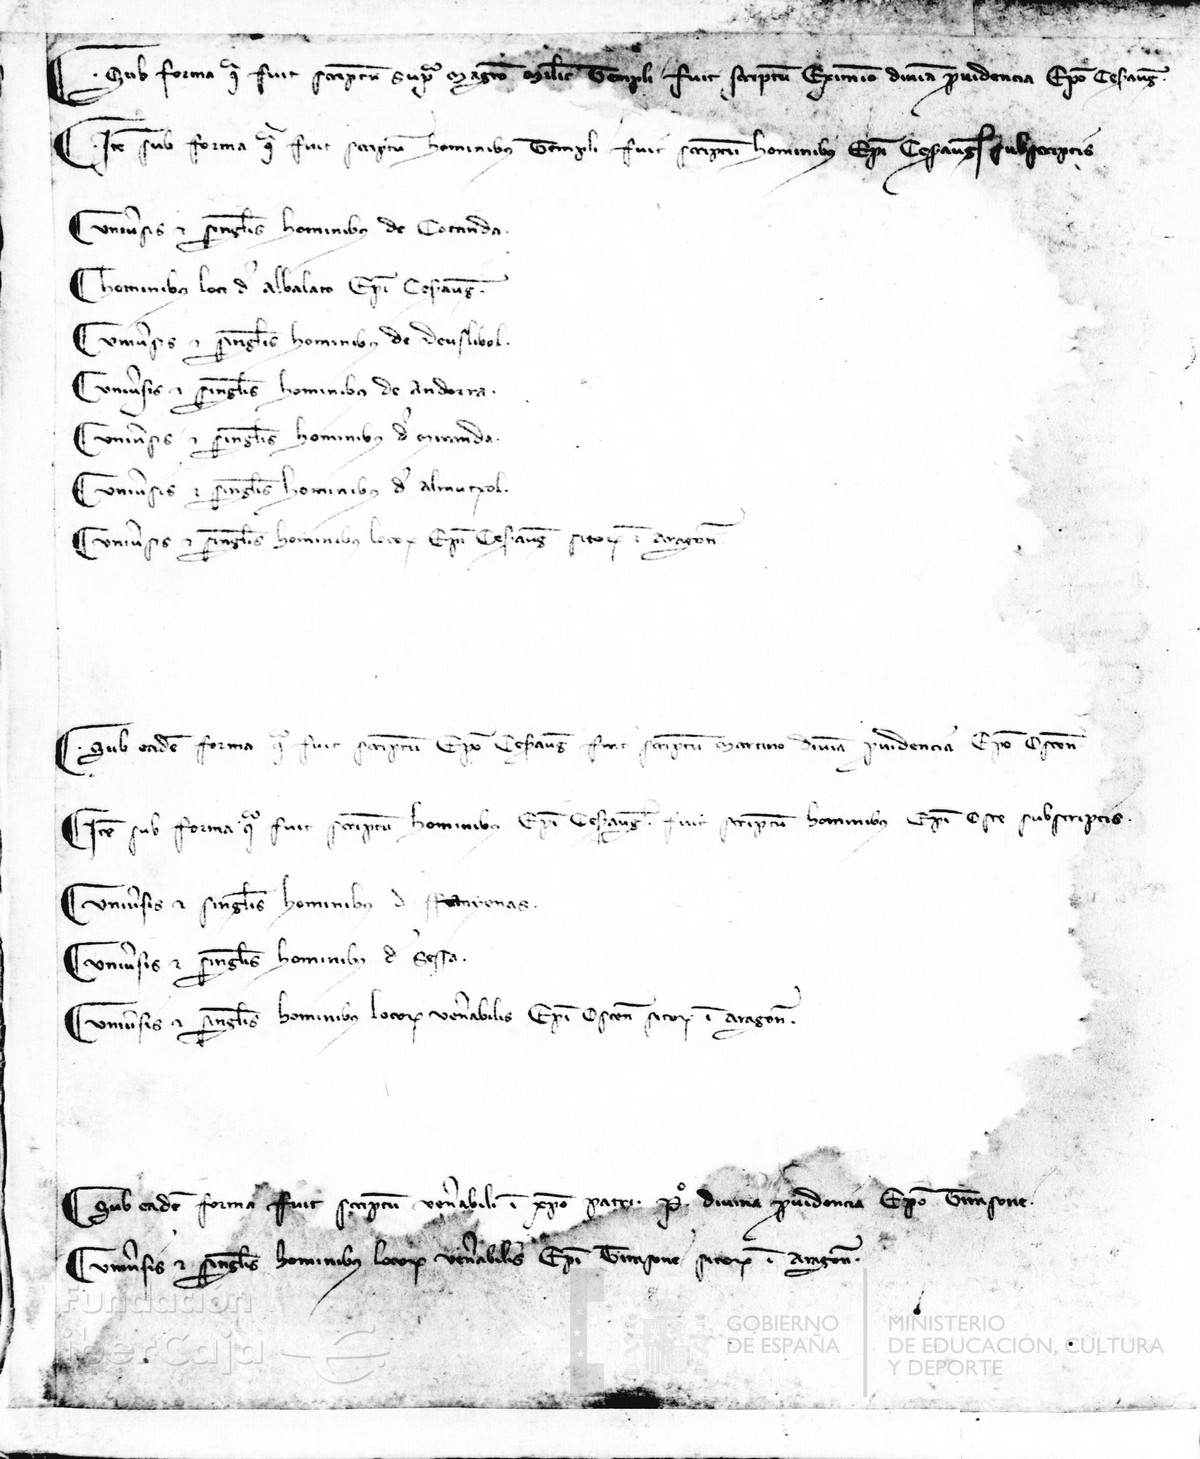 Sub forma q̄ fuit scriptū supͣ Magr̄o Milic̄ Templi fuit scriptū Eximino diuīa ꝓuidencia Ep̄o Cesarauḡ.
Itē sub forma q̄ fuit scriptū hominibꝰ Templi fuit scriptū hominibꝰ Ep̄i Cesarauḡ subscriptis
Uniūsis ⁊ singl̄is hominibꝰ de Cotanda.
hominibꝰ loci d̓ Albalato Ep̄i Cesarauḡ.
Uniūsis ⁊ singl̄is hominibꝰ de Deuslibol.
Uniūsis ⁊ singl̄is hominibꝰ de Andorra.
Uniūsis ⁊ singl̄is hominibꝰ d̓ Miranda.
Uniūsis ⁊ singl̄is hominibꝰ d̓ Almuçol.
Uniūsis ⁊ singl̄is hominibꝰ locoꝝ Ep̄i Cesarauḡ sitoꝝ ī Aragon̄.
Sub eadē forma q̄ fuit scriptū Ep̄o Cesarauḡ fuit scriptū Martino diuīa ꝓuidencia Ep̄o Oscen̄
Itē sub forma q̄ fuit scriptū hominibꝰ Ep̄i Cesarauḡ. fuit scriptū hominibꝰ Ep̄i Osce subscriptis.
Uniūsis ⁊ singl̄is hominibꝰ d̓
Uniūsis ⁊ singl̄is hominibꝰ d̓ Sessa.
Uniūsis ⁊ singl̄is hominibꝰ locoꝝ ven̄abilis Ep̄i Oscen̄ sitoꝝ ī Aragon̄.
Sub eadē forma fuit scriptū ven̄abili ī xp̄o patri. P̊. diuina ꝓuidencia Ep̄o Tirasone.
Uniūsis ⁊ singl̄is hominibꝰ locoꝝ ven̄abilis Ep̄i Tirasone sitoꝝ ī Aragon̄.
Fundación
iberCaja
GOBIERNO
DE ESPAÑA
MINISTERIO
DE EDUCACIÓN, CULTURA
Y DEPORTE